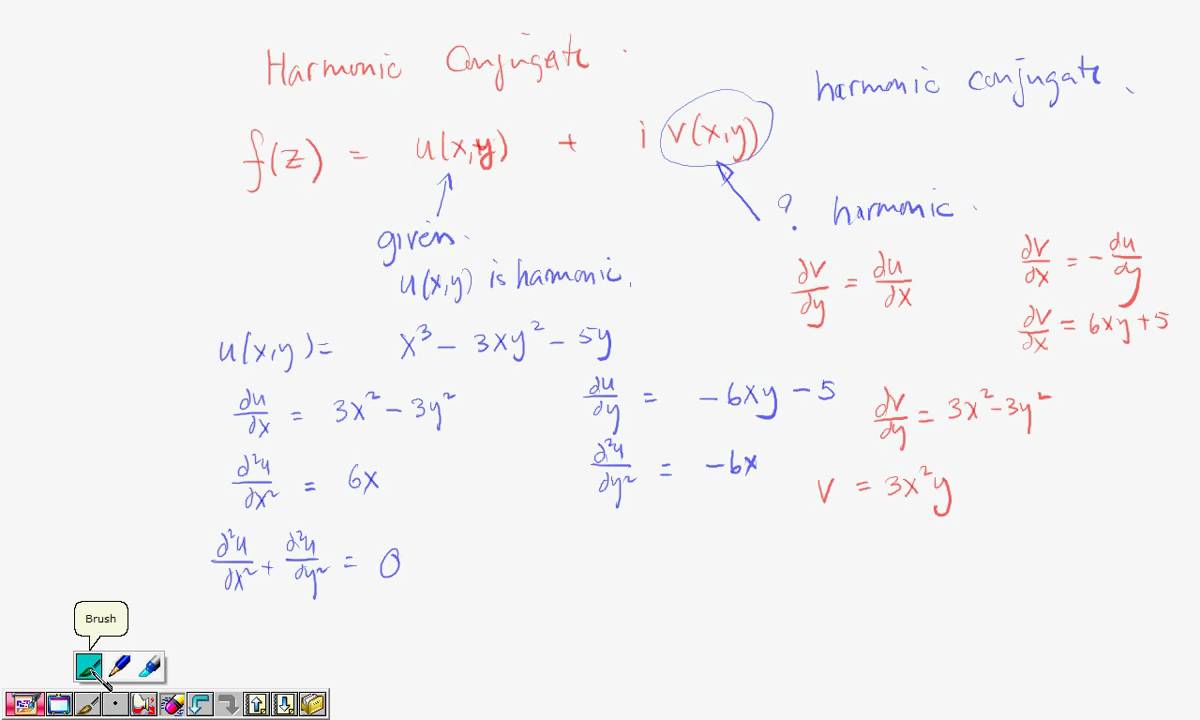 Harmonic Conjugate.
harmonic conjugate.
f(z) = u(x,y) + i v(x,y)
given.
u(x,y) is harmonic.
? harmonic.
∂v/∂y = ∂u/∂x
∂v/∂x = -∂u/∂y
∂v/∂x = 6xy + 5
u(x,y) = x³ - 3xy² - 5y
∂u/∂x = 3x² - 3y²
∂u/∂y = -6xy - 5
∂v/∂y = 3x² - 3y²
∂²u/∂x² = 6x
∂²u/∂y² = -6x
v = 3x²y
∂²u/∂x² + ∂²u/∂y² = 0
Brush